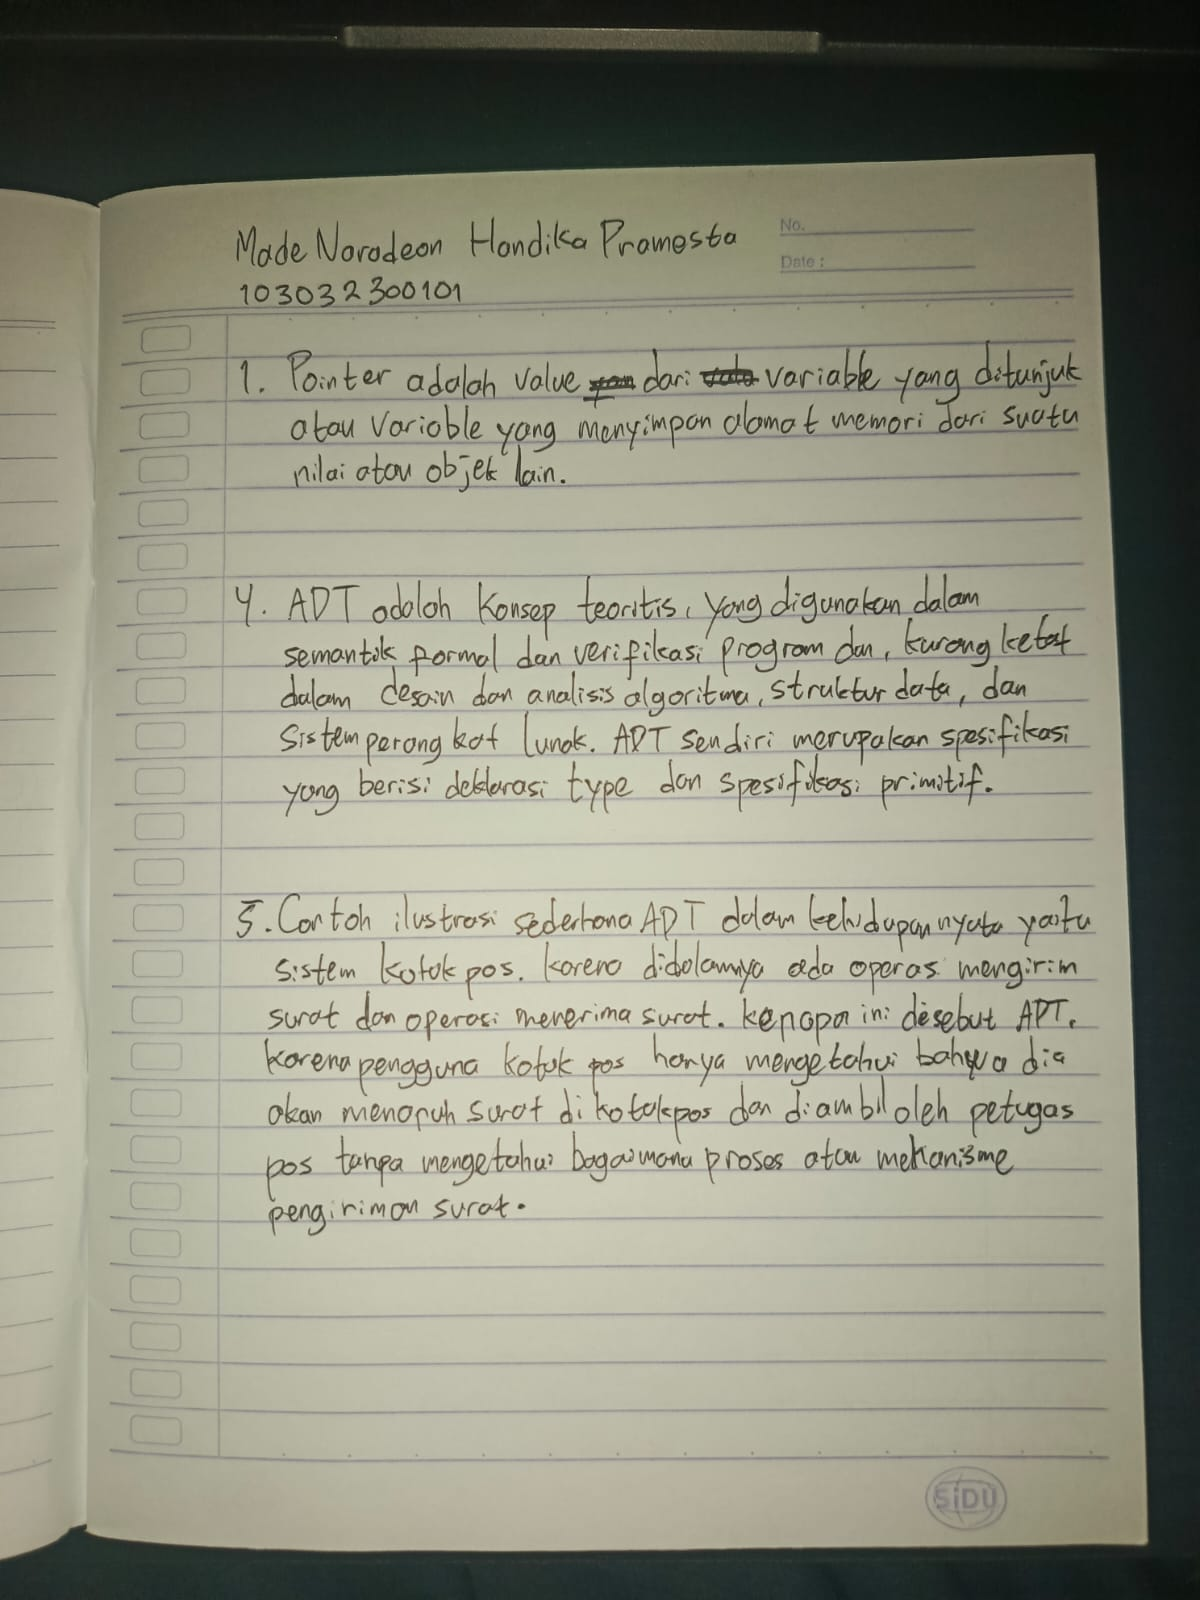 Made Naradeon Handika Pramesta
103032300101
No.
Date :
1. Pointer adalah value dari variable yang ditunjuk
atau variable yang menyimpan alamat memori dari suatu
nilai atau objek lain.
4. ADT adalah konsep teoritis, yang digunakan dalam
semantik formal dan verifikasi program dan, kurang ketat
dalam desain dan analisis algoritma, struktur data, dan
sistem perangkat lunak. ADT sendiri merupakan spesifikasi
yang berisi deklarasi type dan spesifikasi primitif.
5. Contoh ilustrasi sederhana ADT dalam kehidupan nyata yaitu
sistem kotak pos. karena didalamnya ada operasi mengirim
surat dan operasi menerima surat. kenapa ini disebut ADT.
karena pengguna kotak pos hanya mengetahui bahwa dia
akan menaruh surat di kotak pos dan diambil oleh petugas
pos tanpa mengetahui bagaimana proses atau mekanisme
pengiriman surat.
SiDU